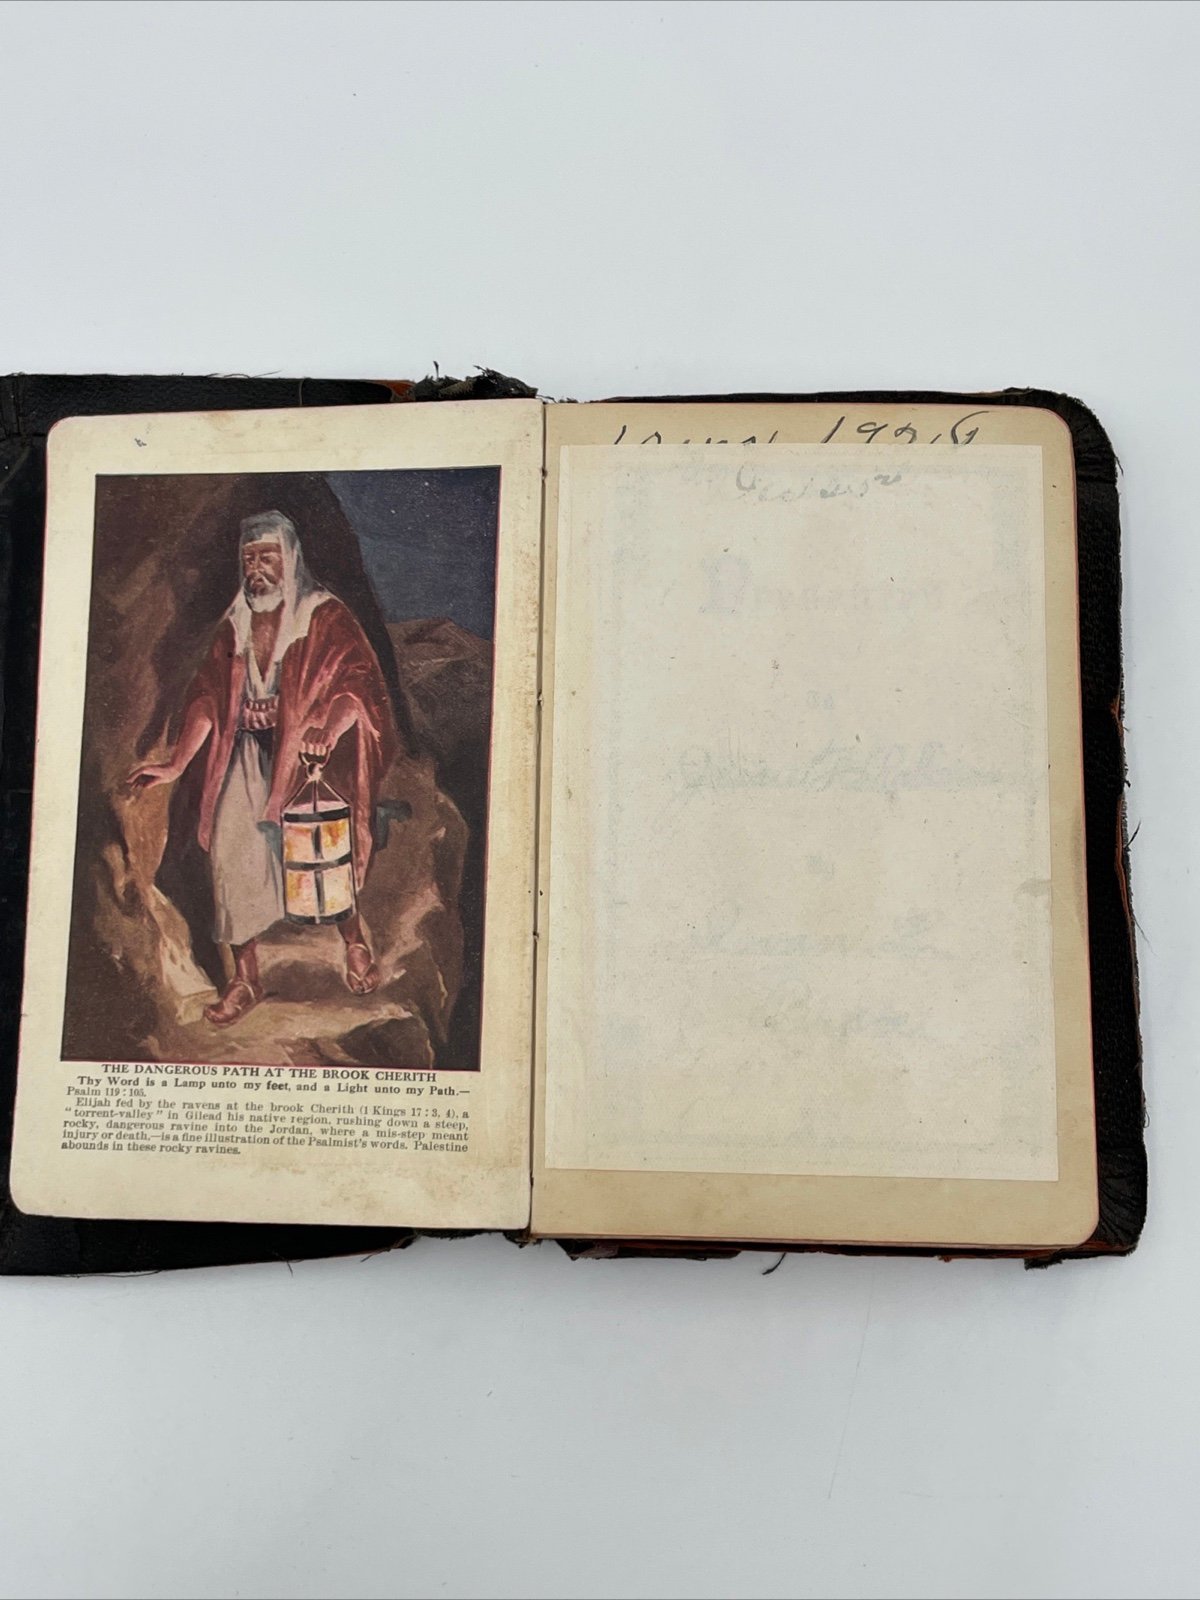 THE DANGEROUS PATH AT THE BROOK CHERITH
Thy Word is a Lamp unto my feet, and a Light unto my Path.—
Psalm 119:105.
Elijah fed by the ravens at the brook Cherith (1 Kings 17:3, 4), a
"torrent-valley" in Gilead his native region, rushing down a steep,
rocky, dangerous ravine into the Jordan, where a mis-step meant
injury or death,—is a fine illustration of the Psalmist's words. Palestine
abounds in these rocky ravines.